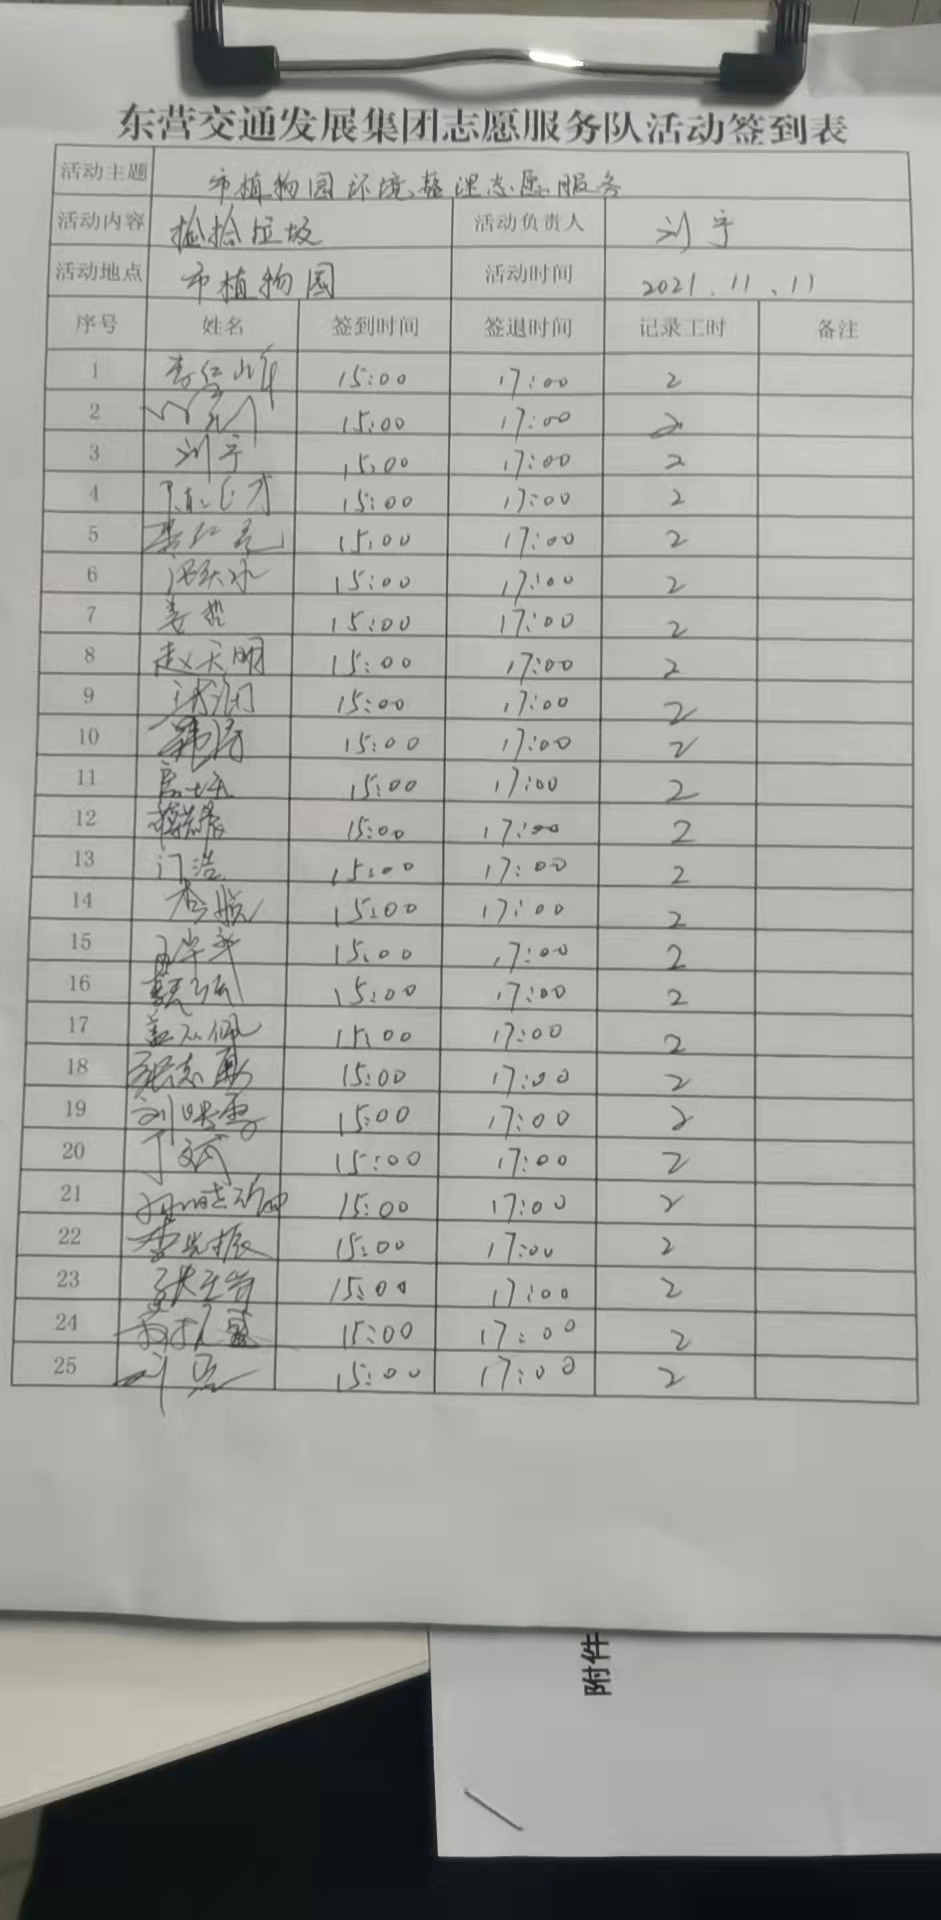 东营交通发展集团志愿服务队活动签到表
活动主题 市植物园环境整理志愿服务
活动内容 捡拾垃圾 活动负责人 刘宇
活动地点 市植物园 活动时间 2021.11.11
序号 姓名 签到时间 签退时间 记录工时 备注
1 15:00 17:00 2
2 15:00 17:00 2
3 刘宇 15:00 17:00 2
4 15:00 17:00 2
5 15:00 17:00 2
6 15:00 17:00 2
7 姜哲 15:00 17:00 2
8 赵天明 15:00 17:00 2
9 15:00 17:00 2
10 15:00 17:00 2
11 15:00 17:00 2
12 15:00 17:00 2
13 门浩 15:00 17:00 2
14 李航 15:00 17:00 2
15 15:00 17:00 2
16 15:00 17:00 2
17 15:00 17:00 2
18 张志勇 15:00 17:00 2
19 15:00 17:00 2
20 15:00 17:00 2
21 15:00 17:00 2
22 15:00 17:00 2
23 15:00 17:00 2
24 15:00 17:00 2
25 15:00 17:00 2
附件